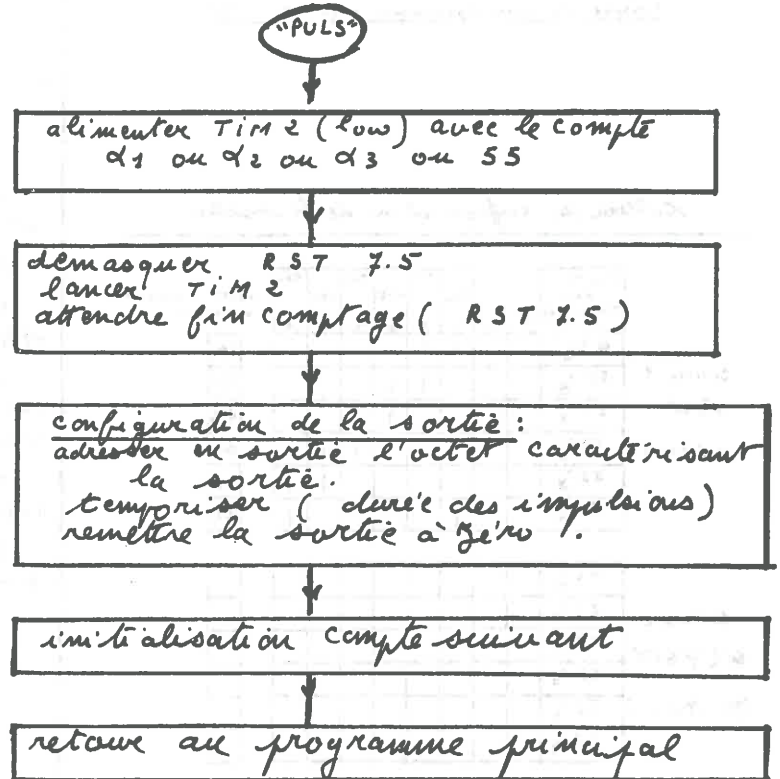 "PULS"
alimenter TIM 2 (low) avec le compte
α1 ou α2 ou α3 ou 55
démasquer RST 7.5
lancer TIM 2
attendre fin comptage ( RST 7.5 )
configuration de la sortie :
adresser en sortie l'octet caractérisant
la sortie.
temporiser ( durée des impulsions )
remettre la sortie à zéro .
initialisation compte suivant
retour au programme principal